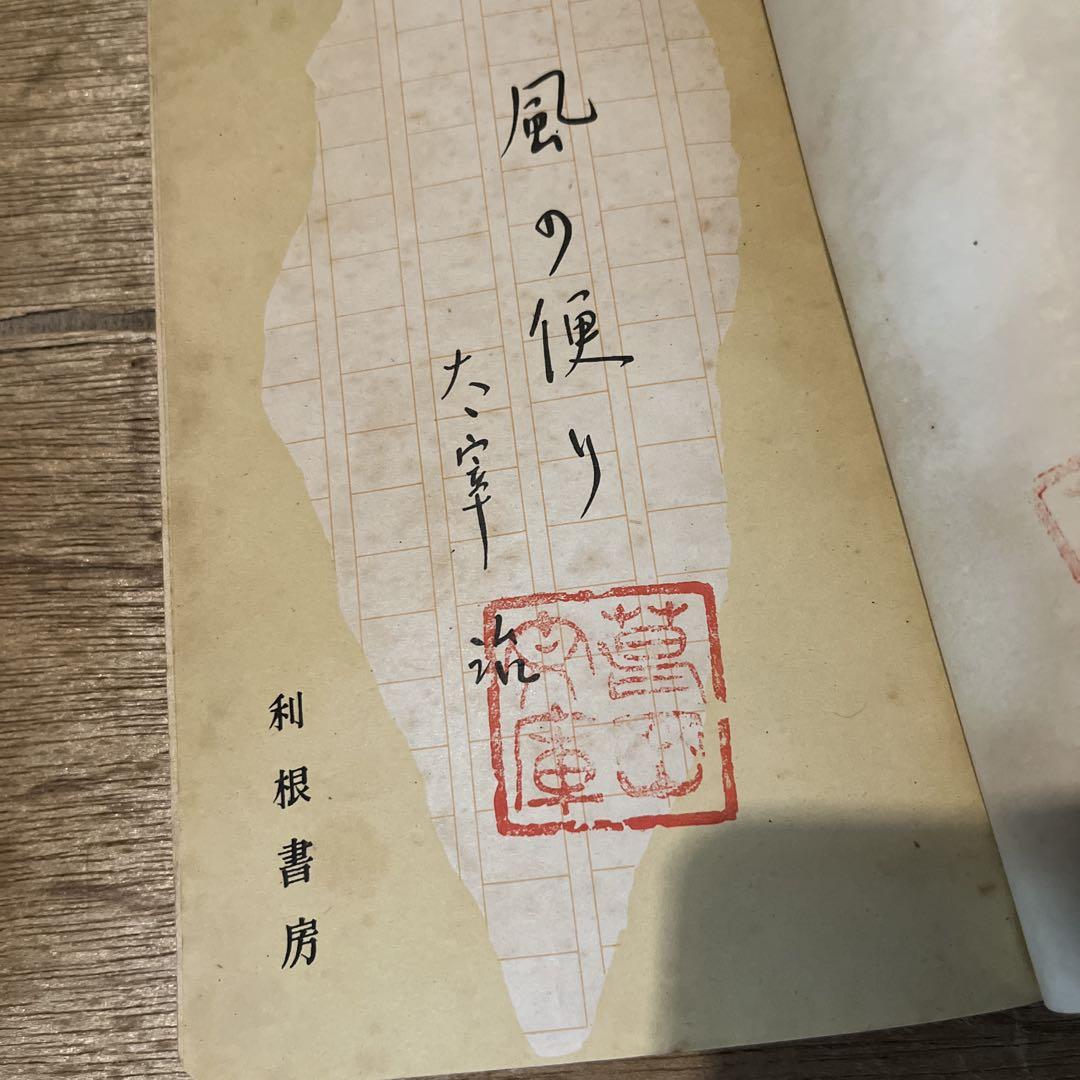 風の便り
太宰治
利根書房